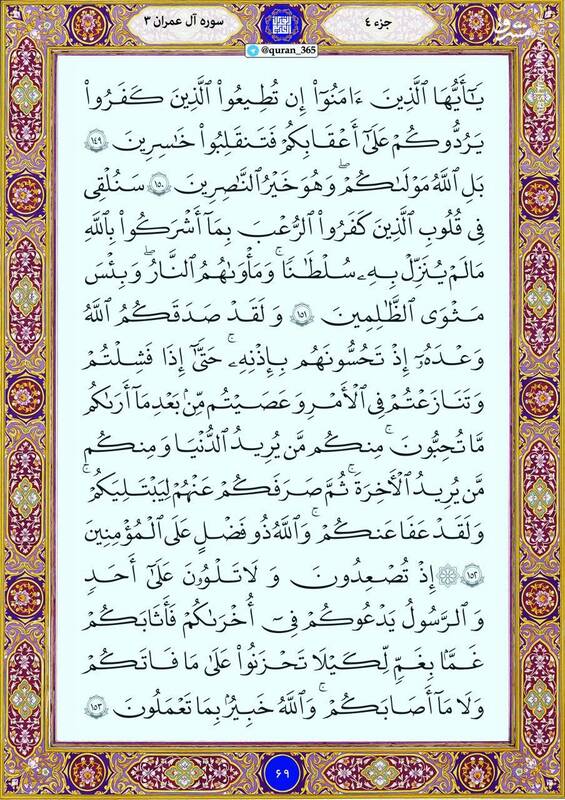 جزء ٤
@quran_365
سوره آل عمران ٣
مشرق
يَٰٓأَيُّهَا ٱلَّذِينَ ءَامَنُوٓا۟ إِن تُطِيعُوا۟ ٱلَّذِينَ كَفَرُوا۟
يَرُدُّوكُمْ عَلَىٰٓ أَعْقَٰبِكُمْ فَتَنقَلِبُوا۟ خَٰسِرِينَ ١٤٩
بَلِ ٱللَّهُ مَوْلَىٰكُمْ ۖ وَهُوَ خَيْرُ ٱلنَّٰصِرِينَ ١٥٠ سَنُلْقِى
فِى قُلُوبِ ٱلَّذِينَ كَفَرُوا۟ ٱلرُّعْبَ بِمَآ أَشْرَكُوا۟ بِٱللَّهِ
مَا لَمْ يُنَزِّلْ بِهِۦ سُلْطَٰنًا ۖ وَمَأْوَىٰهُمُ ٱلنَّارُ ۚ وَبِئْسَ
مَثْوَى ٱلظَّٰلِمِينَ ١٥١ وَلَقَدْ صَدَقَكُمُ ٱللَّهُ
وَعْدَهُۥٓ إِذْ تَحُسُّونَهُم بِإِذْنِهِۦ ۖ حَتَّىٰٓ إِذَا فَشِلْتُمْ
وَتَنَٰزَعْتُمْ فِى ٱلْأَمْرِ وَعَصَيْتُم مِّنۢ بَعْدِ مَآ أَرَىٰكُم
مَّا تُحِبُّونَ ۚ مِنكُم مَّن يُرِيدُ ٱلدُّنْيَا وَمِنكُم
مَّن يُرِيدُ ٱلْأَخِرَةَ ۚ ثُمَّ صَرَفَكُمْ عَنْهُمْ لِيَبْتَلِيَكُمْ ۖ
وَلَقَدْ عَفَا عَنكُمْ ۗ وَٱللَّهُ ذُو فَضْلٍ عَلَى ٱلْمُؤْمِنِينَ
١٥٢ ۞ إِذْ تُصْعِدُونَ وَلَا تَلْوُۥنَ عَلَىٰٓ أَحَدٍ
وَٱلرَّسُولُ يَدْعُوكُمْ فِىٓ أُخْرَىٰكُمْ فَأَثَٰبَكُمْ
غَمًّۢا بِغَمٍّ لِّكَيْلَا تَحْزَنُوا۟ عَلَىٰ مَا فَاتَكُمْ
وَلَا مَآ أَصَٰبَكُمْ ۗ وَٱللَّهُ خَبِيرٌۢ بِمَا تَعْمَلُونَ ١٥٣
٦٩